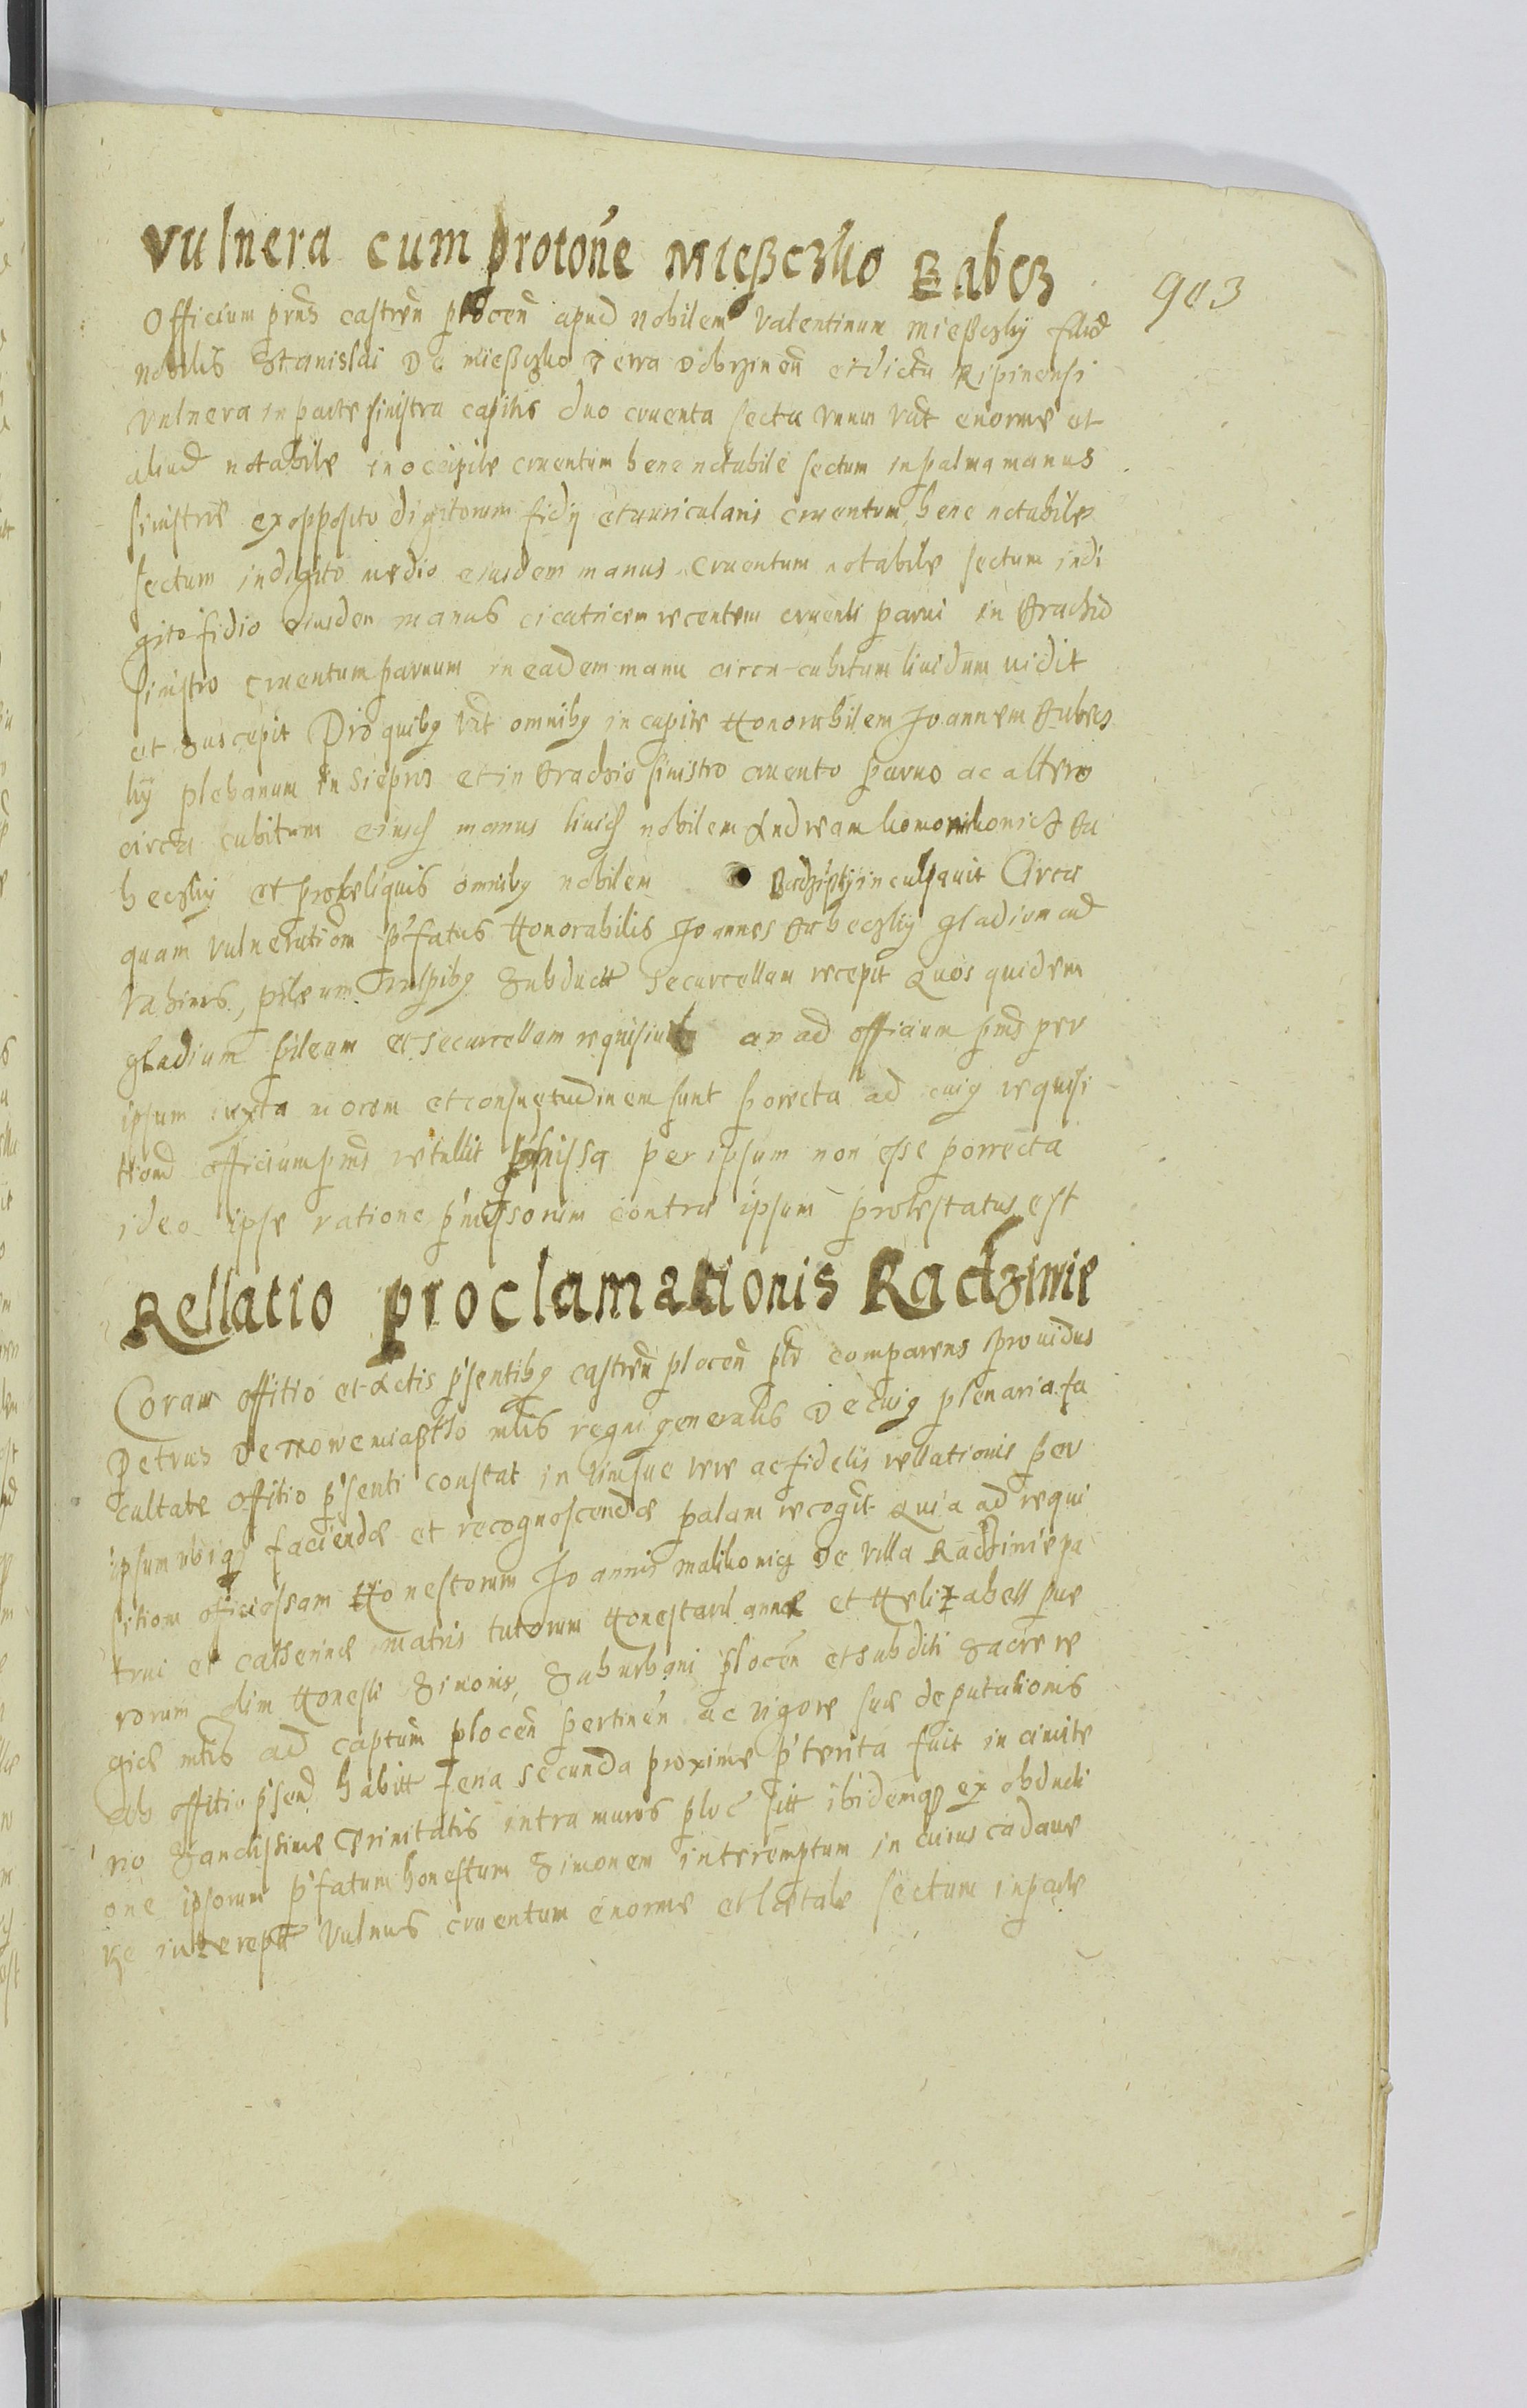 Vulnera cum proton̄e Mießczko Babecz
903
Officium prn̄s castren̄ plocen̄ apud Nobilem Valentinum Mießczky filiū
nobilis Stanislai De Mießczko Terra Dobrzinen̄ et dictu Ripinensi
Vulnera in parte sinistra capitis duo cruenta secta unum vn̄t enorme et
aliud notabile in occipite cruentum bene notabile sectum in palma manus
sinistre ex opposito digitorum fidy et auricularis cruentum bene notabile
sectum in digito medio eiusdem manus cruentum notabile sectum in di
gito fidio eiusdem manus cicatricem recentem cruenti parui in brachio
sinistro cruentum paruum in eadem manu circa cubitum liuidum uidit
et suscepit Pro quibq vn̄t omnibq in capite Honorabilem Joannem Gubecz
ky plebanum in Sieprcz et in brachio sinistro cruento paruo ac altero
circa cubitum eiusd manus liuid nobilem Andream komornikonicz Gu
beczky et pro reliquis omnibq nobilem Badzisky inculpauit Circa
quam vulneratiom p'fatus Honorabilis Joannes Gubeczky gladium cud
vaginis, pileum vulpibq subductt securcellam recepit Quos quidem
gladium pileum et securcellam requisiuit an ad officium pn̄s per
ipsum iuxta morem et consuetudinem sunt porrecta ad cuiq requisi
tiond officium pn̄s retullit p'missa per ipsum non esse porrecta
ideo ipse ratione p'missorum contra ipsum protestatus est
Rellatio proclamationis Radzimie
Coram offitio et Actis p'sentibq castren̄ plocen̄ plr comparens Prouidus
Petrus De Nowemiastho mtis regni generalis De cuiq plenaria fa
cultate offitio p'senti constat in vim sue vere ac fidelis rellationis per
ipsum ubiq faciendæ et recognoscendæ palam recogt Quia ad requi
sitiom officiosam Honestorum Joannis Malikonicz De Villa Radzimie pa
trui et Catherinæ matris tutorum Honestarū annæ et Helizabeth pue
rorum olim Honesti Simonis, Suburbani plocen̄ et subditi Sacre re
giæ mtis ad captum̄ plocen̄ pertinen̄ ac vigore sue deputationis
ab offitio p'send habitt feria secunda proxime p'terita fuit in cimite
rio Sanctissime Trinitatis intra muros ploc sitt ibidemq ex obducti
one ipsorum p'fatum honestum Simonem interemptum in cuius cadaue
re interemptt Vulnus cruentum enorme et lætale sectum in parte